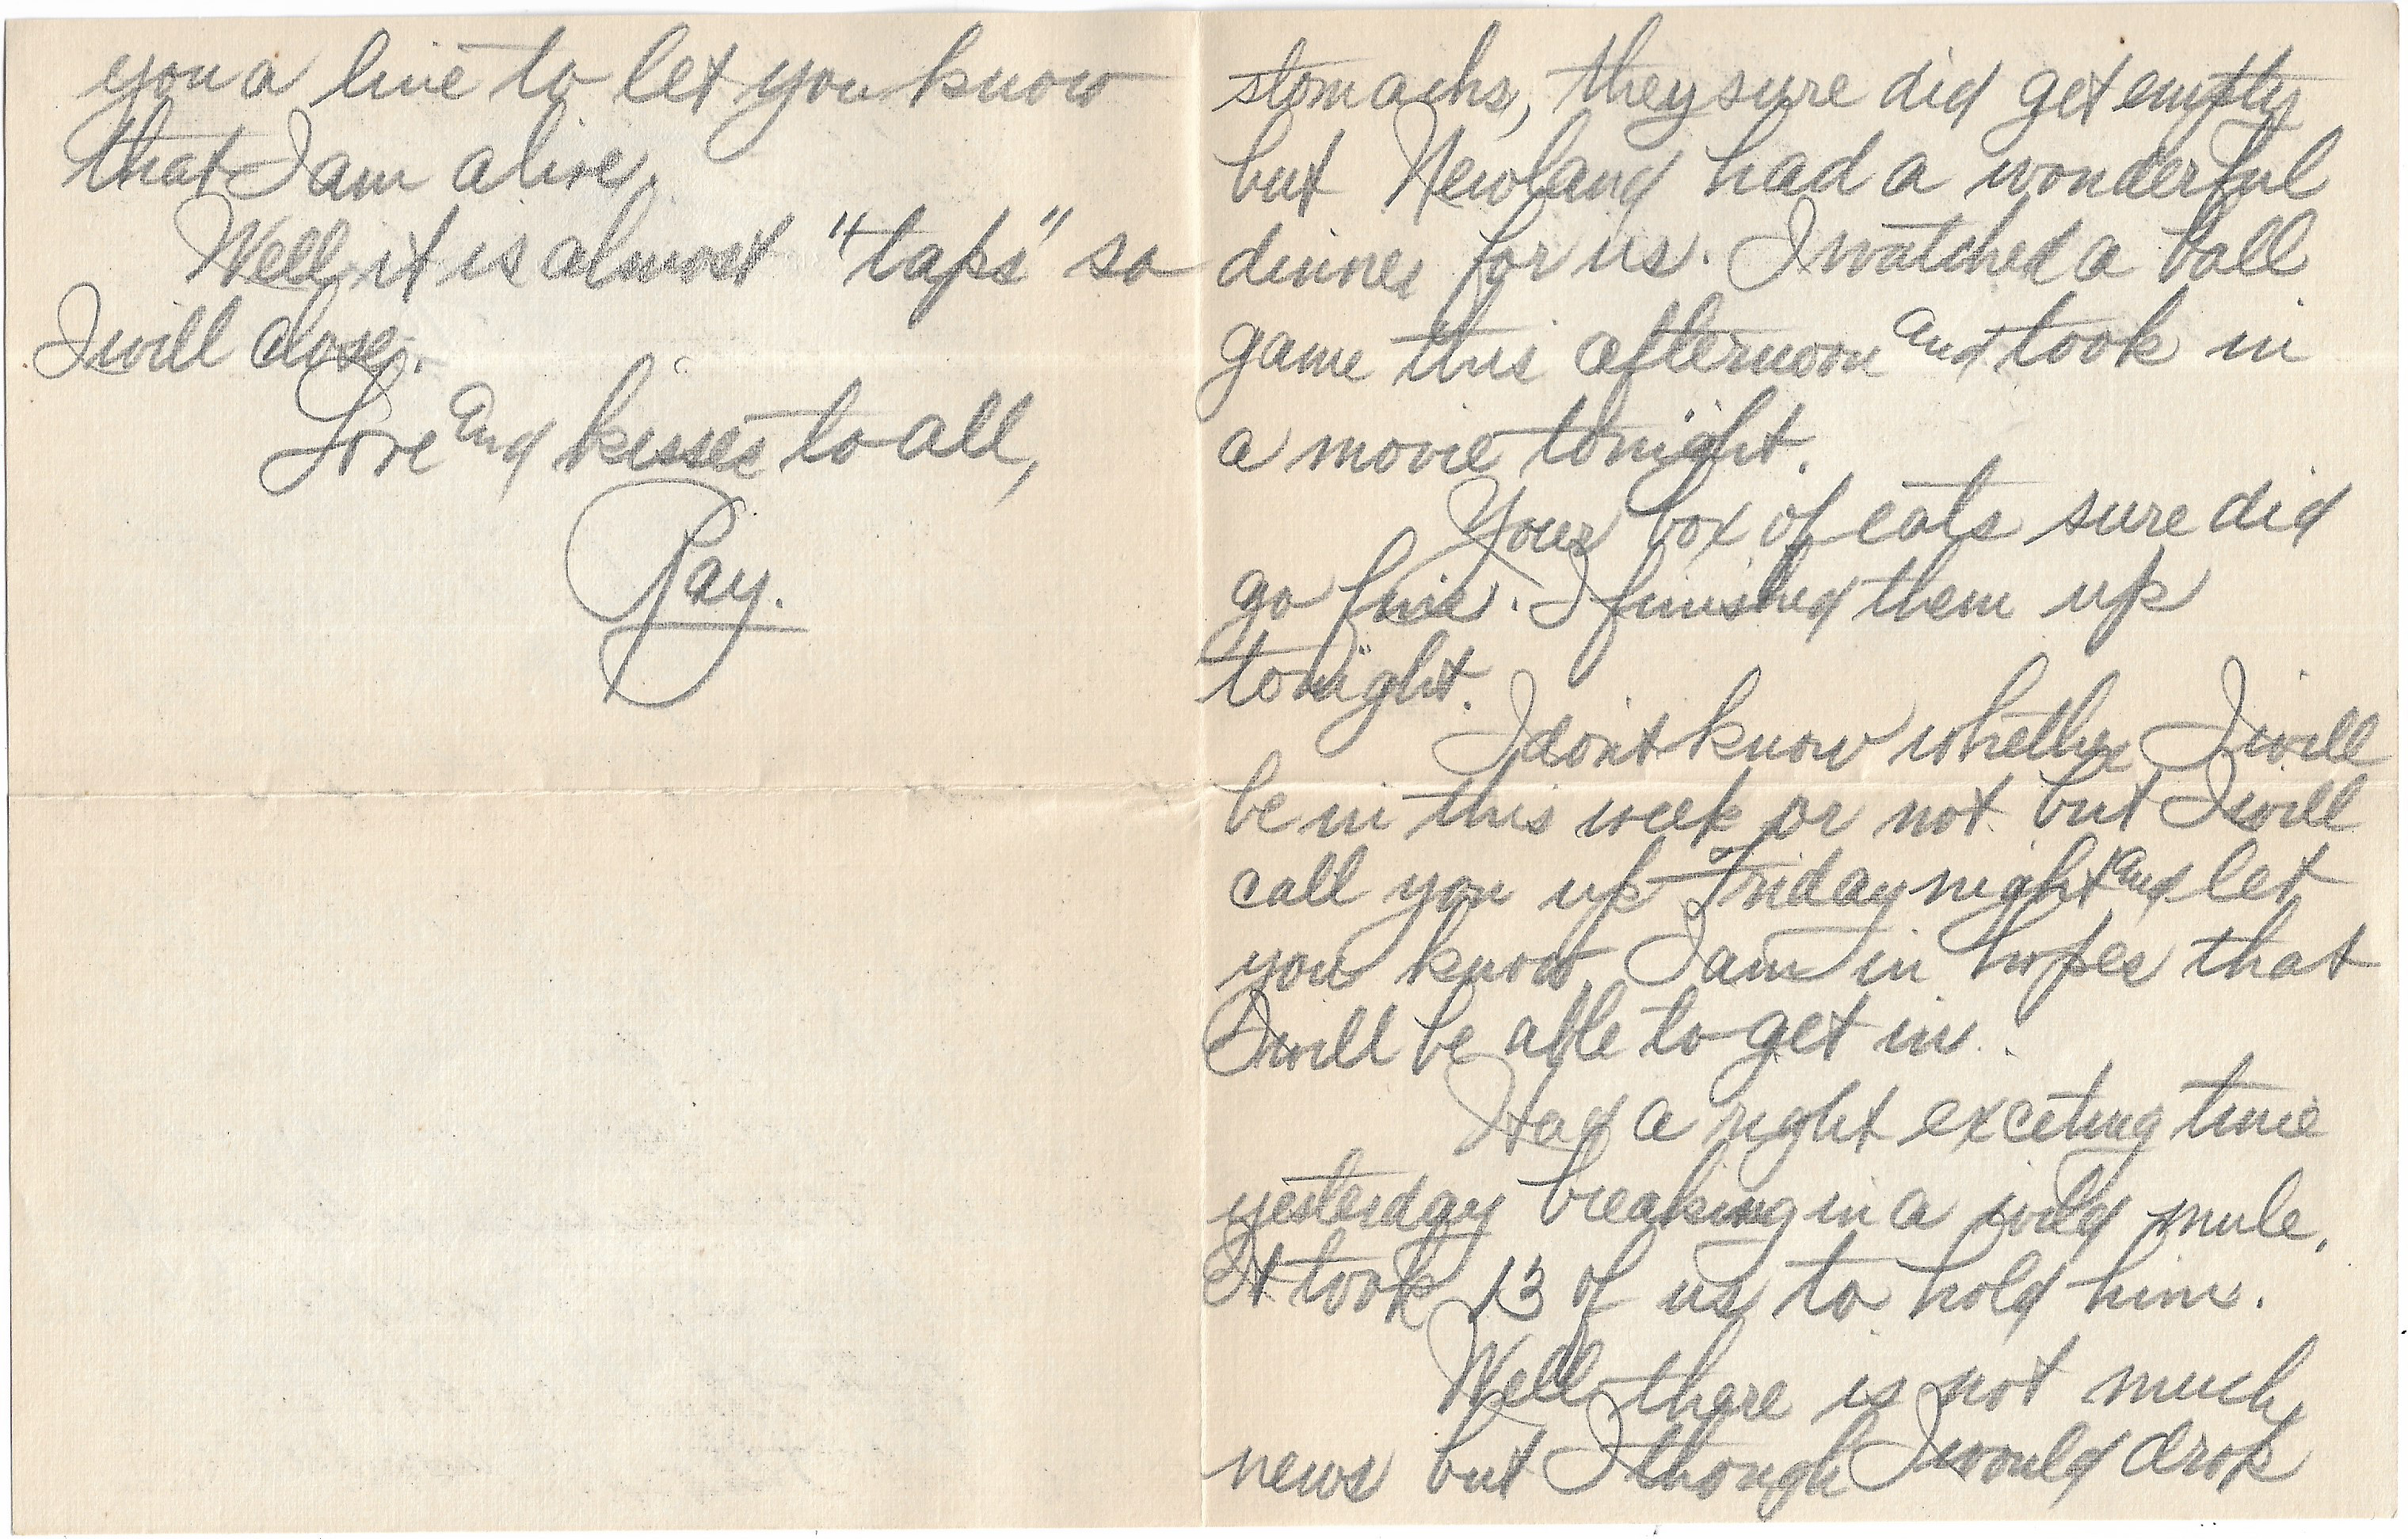 stomachs, they sure did get empty
but Newland had a wonderful
dinner for us. I watched a ball
game this afternoon and took in
a movie tonight.
Your box of eats sure did
go fine. I finished them up
tonight.
I don't know whether I will
be in this week or not but I will
call you up Friday night and let
you know. I am in hopes that
I will be able to get in.
Had a right exceting time
yesterday breaking in a wild mule.
It took 13 of us to hold him.
Well there is not much
news but I though I would drop
you a line to let you know
that I am alive.
Well it is almost "taps" so
I will close.
Love and kisses to all,
Ray.